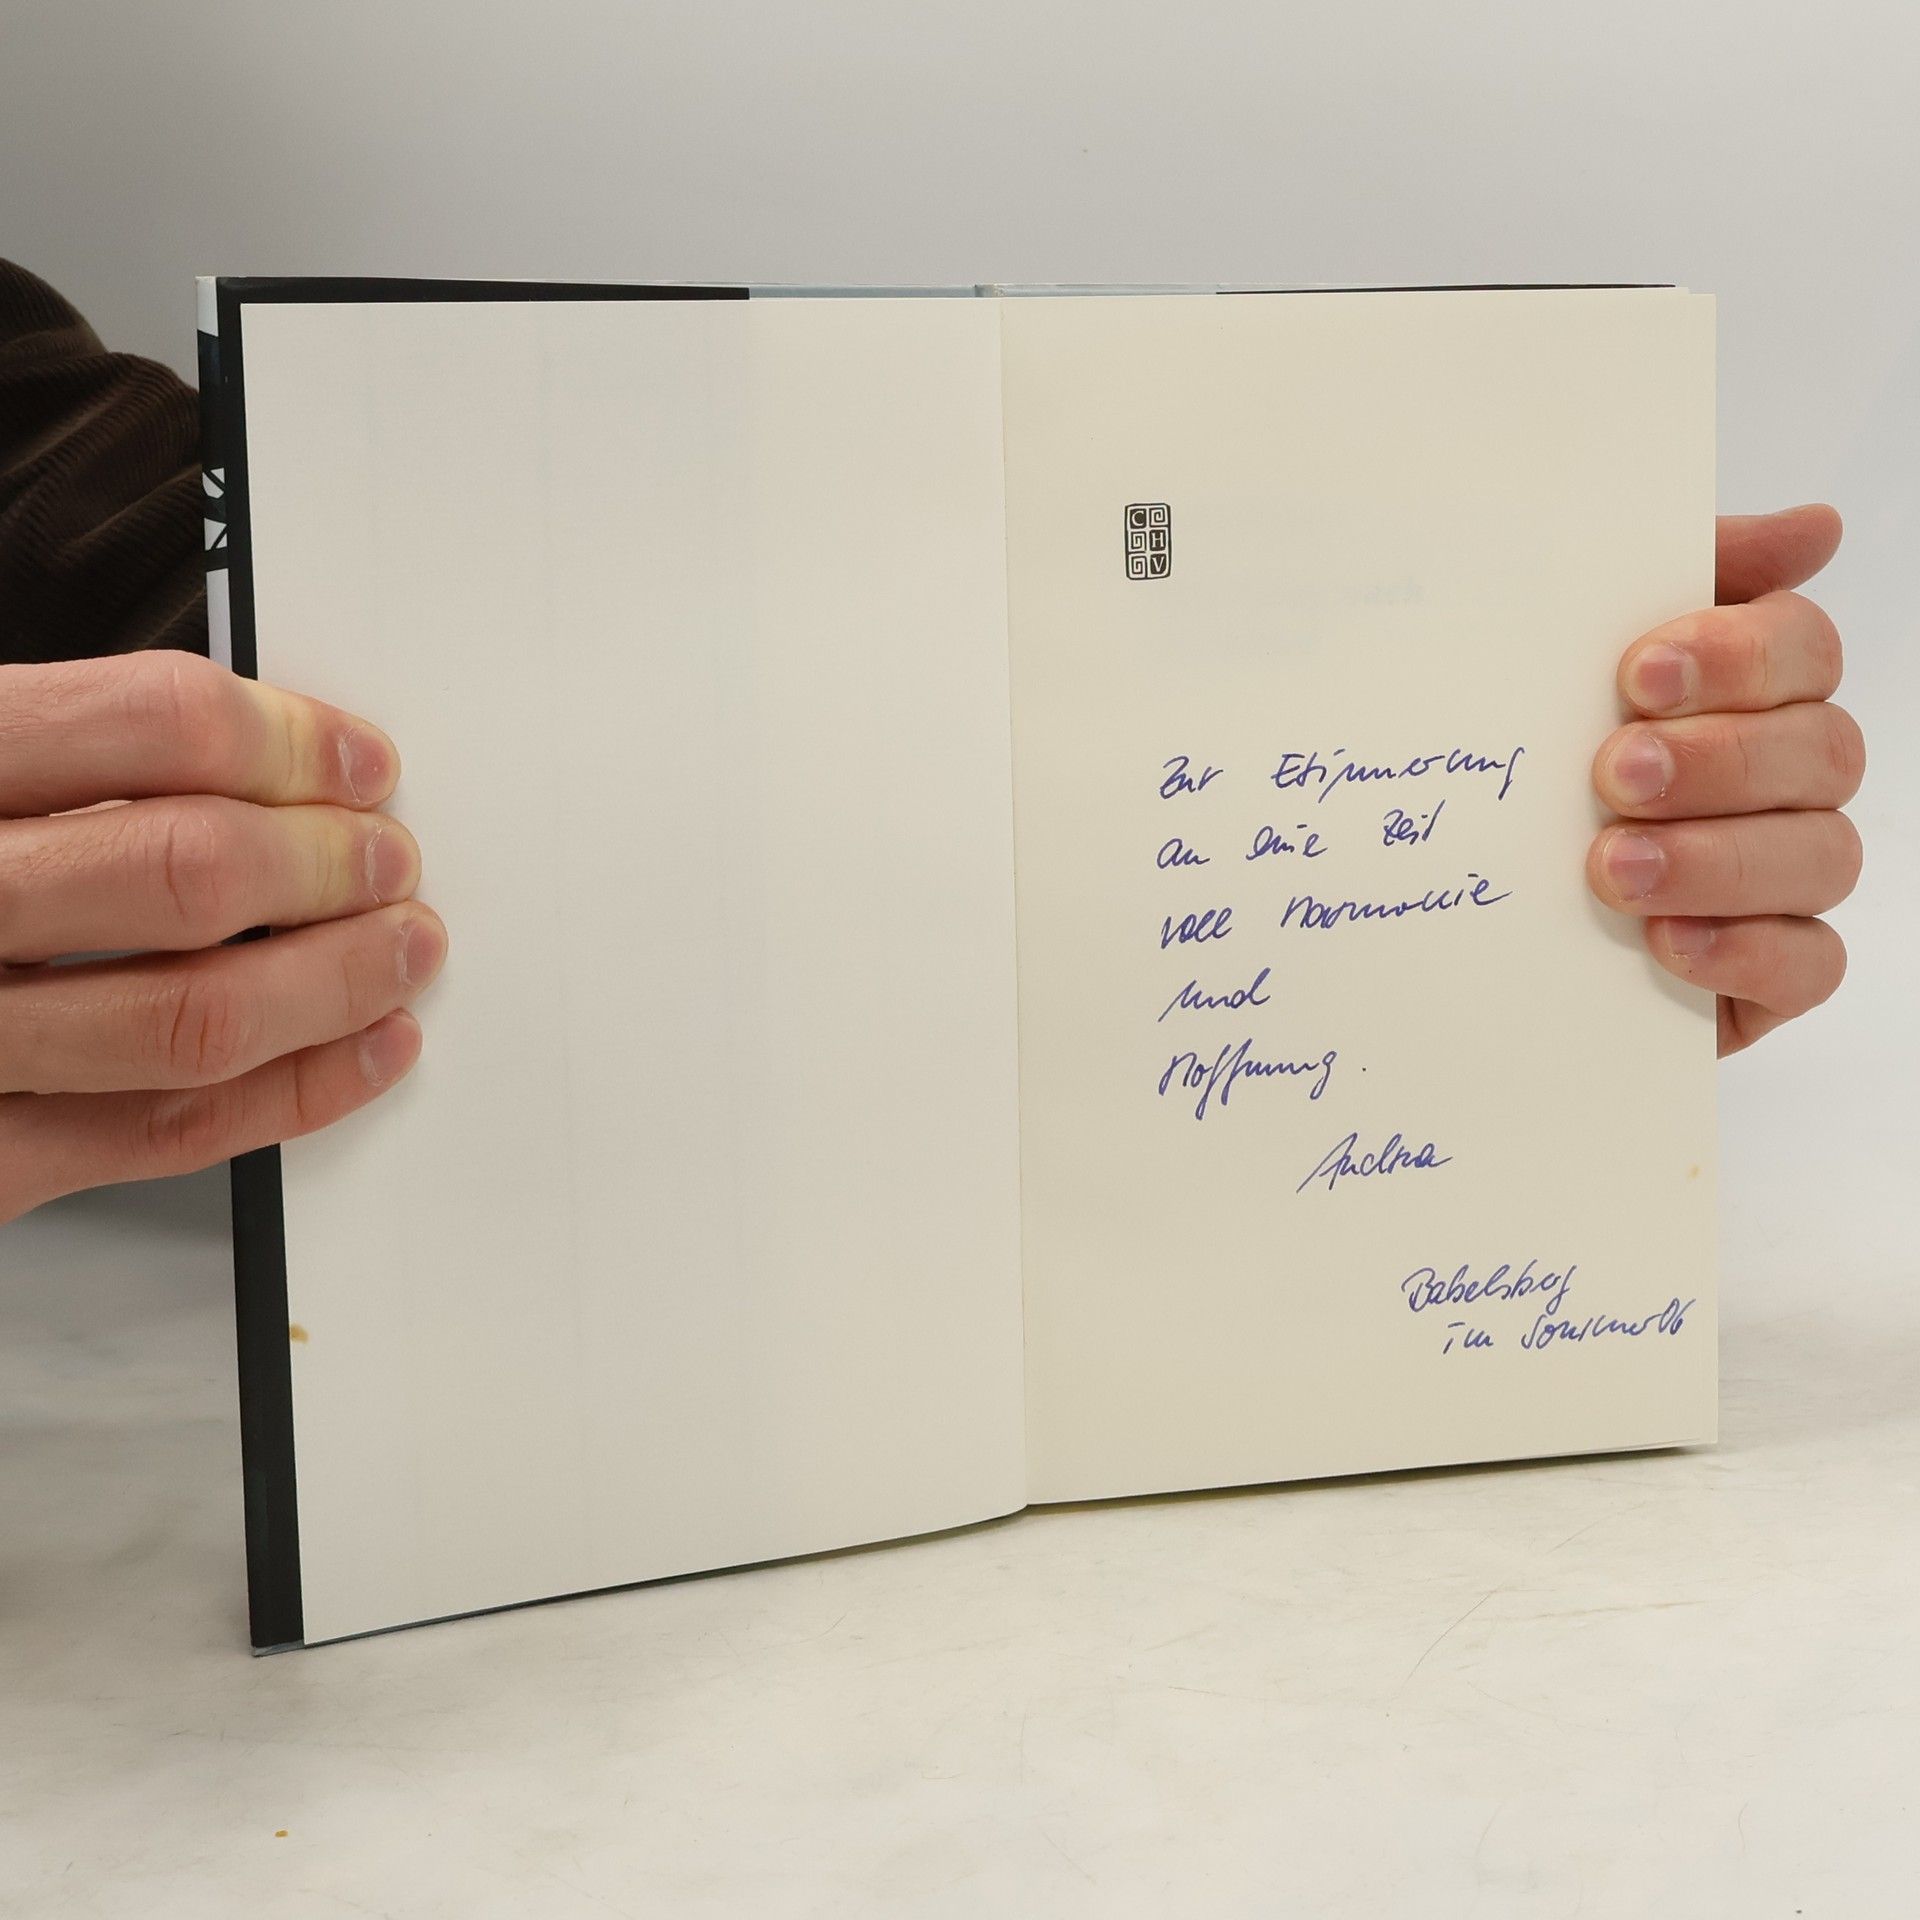 C
H
V
Zur Erinnerung
an eine Zeit
voll Harmonie
und
Hoffnung.
Andrea
Babelsberg
im Sommer 06